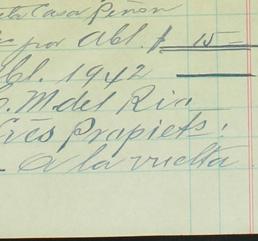 Casa Peñon
por Abl. $ 15-
Abl. 1942
M del Rio
Propiets:
a la vuelta